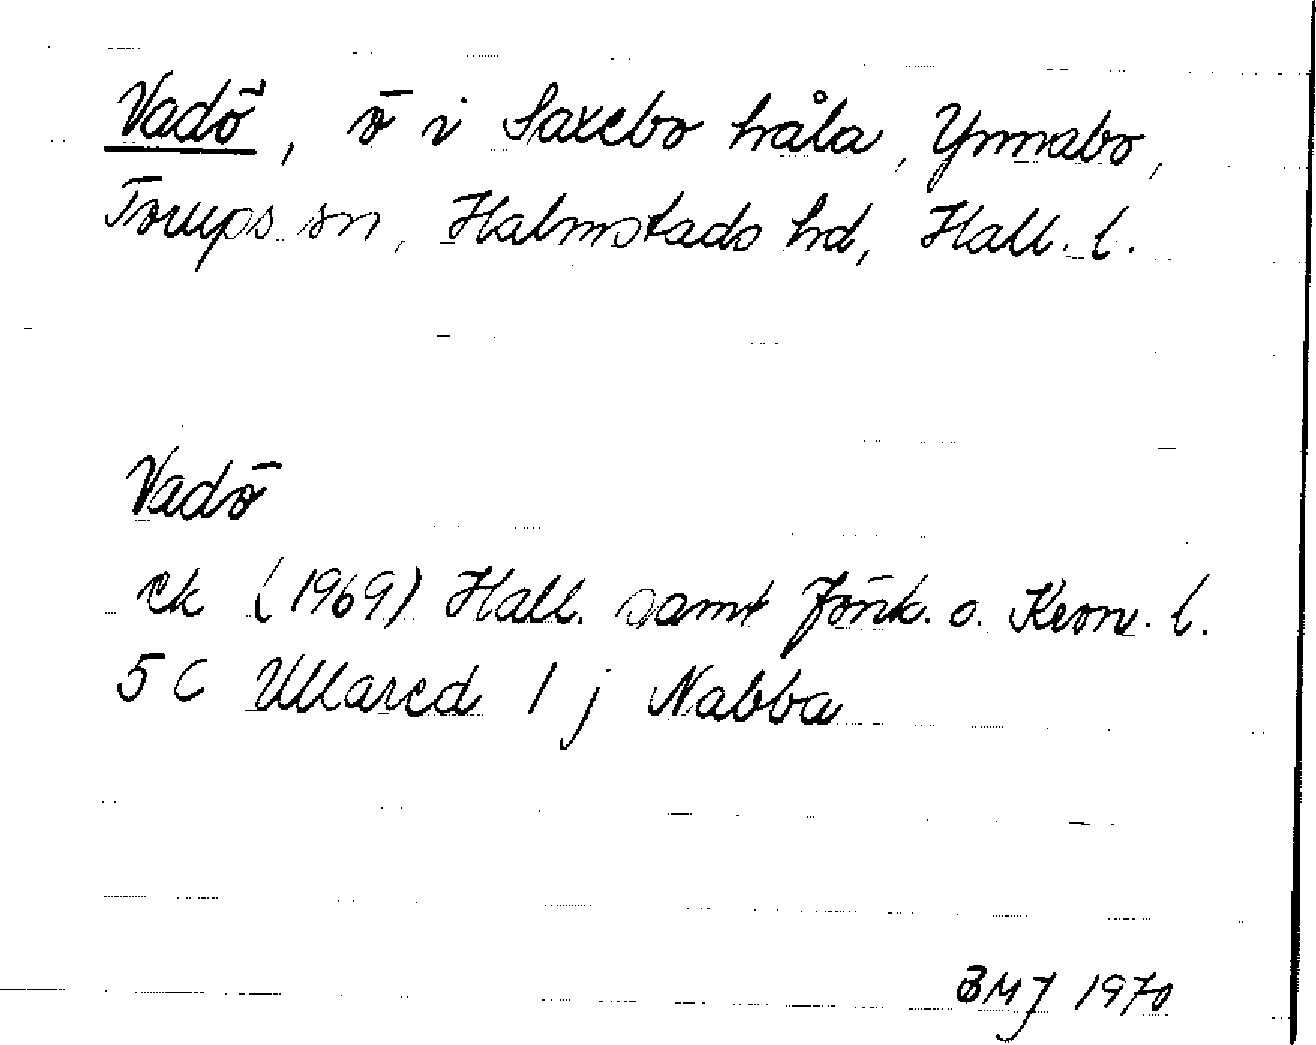 Vadö, ö i Saxebo håla, Ynnabo,
Torups sn, Halmstads hd, Hall. l.
Vadö
ek (1969) Hall. samt Jönk. o. Kron. l.
5 C Ullared 1 j Nabba
BMJ 1970